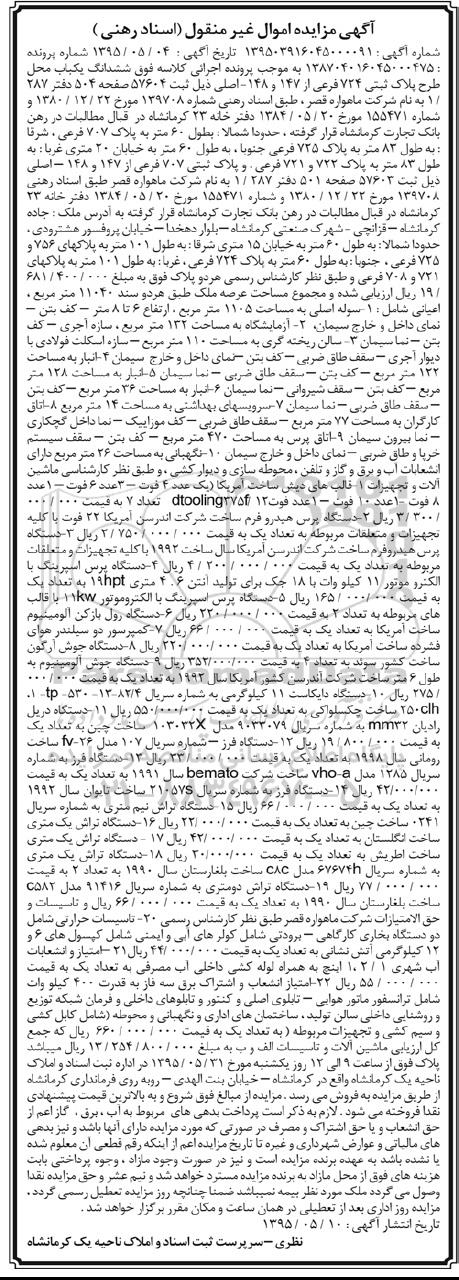 آگهی مزایده اموال غیر منقول (اسناد رهنی)
شماره آگهی : ۱۳۹۵۰۳۹۱۶۰۴۵۰۰۰۰۹۱ تاریخ آگهی : ۰۴ / ۰۵ / ۱۳۹۵ شماره پرونده
: ۱۳۸۷۰۴۰۱۶۰۴۵۰۰۰۴۷۵ به موجب پرونده اجرائی کلاسه فوق ششدانگ یکباب محل
طرح پلاک ثبتی ۷۲۴ فرعی از ۱۴۷ و ۱۴۸-اصلی ذیل ثبت ۵۷۶۰۴ صفحه ۵۰۴ دفتر ۲۸۷
/ ۱ به نام شرکت ماهواره قصر ، طبق اسناد رهنی شماره ۱۳۹۷۰۸ مورخ ۲۲ / ۱۲ / ۱۳۸۰ و
شماره ۱۵۵۴۷۱ مورخ ۲۰ / ۰۵ / ۱۳۸۴ دفتر خانه ۲۳ کرمانشاه در قبال مطالبات در رهن
بانک تجارت کرمانشاه قرار گرفته ، حدودا شمالا : بطول ۶۰ متر به پلاک ۷۰۷ فرعی ، شرقا
: به طول ۸۳ متر به پلاک ۷۲۵ فرعی جنوبا ، به طول ۶۰ متر به خیابان ۲۰ متری غربا : به
طول ۸۳ متر به پلاک ۷۲۲ و ۷۲۱ فرعی . و پلاک ثبتی ۷۰۷ فرعی از ۱۴۷ و ۱۴۸ – اصلی
ذیل ثبت ۵۷۶۰۳ صفحه ۵۰۱ دفتر ۲۸۷ / ۱ به نام شرکت ماهواره قصر طبق اسناد رهنی
۱۳۹۷۰۸ مورخ ۲۲ / ۱۲ / ۱۳۸۰ و شماره ۱۵۵۴۷۱ مورخ ۲۰ / ۰۵ / ۱۳۸۴ دفتر خانه ۲۳
کرمانشاه در قبال مطالبات در رهن بانک تجارت کرمانشاه قرار گرفته به آدرس ملک : جاده
کرمانشاه – قزانچی – شهرک صنعتی کرمانشاه – بلوار دهخدا – خیابان پروفسور هشترودی ،
حدودا شمالا: به طول ۶۰ متر به خیابان ۱۵ متری شرقا: به طول ۱۰۱ متر به پلاکهای ۷۵۶ و
۷۲۵ فرعی ، جنوبا : به طول ۶۰ متر به پلاک ۷۲۴ فرعی ، غربا : به طول ۱۰۱ متر به پلاکهای
۷۲۱ و ۷۰۸ فرعی و طبق نظر کارشناس رسمی هردو پلاک فوق به مبلغ ۰۰۰ / ۴۰۰ / ۶۸۱
/ ۱۹ ریال ارزیابی شده و مجموع مساحت عرصه ملک طبق هردو سند ۱۱۰۴۰ متر مربع ،
اعیانی شامل : ۱-سوله اصلی به مساحت ۱۱۰۵ متر مربع ، ارتفاع ۶ تا ۸ متر – کف بتن –
نمای داخل و خارج سیمان، ۲- آزمایشگاه به مساحت ۱۳۲ متر مربع ، سازه آجری – کف
بتن – نما سیمان ۳- سالن ریخته گری به مساحت ۱۱۰ متر مربع – سازه اسکلت فولادی با
دیوار آجری – سقف طاق ضربی – کف بتن – نمای داخل و خارج سیمان ۴-انبار به مساحت
۱۲۲ متر مربع – کف بتن – سقف طاق ضربی – نما سیمان ۵-انبار به مساحت ۱۲۸ متر
مربع – کف بتن – سقف شیروانی – نما سیمان ۶-انبار به مساحت ۳۶ متر مربع – کف بتن
– سقف طاق ضربی – نما سیمان ۷-سرویسهای بهداشتی به مساحت ۱۴ متر مربع ۸-اتاق
کارگران به مساحت ۷۷ متر مربع – سقف طاق ضربی – کف موزاییک – نما داخل گچکاری
– نما بیرون سیمان ۹-اتاق پرس به مساحت ۴۷۰ متر مربع – کف بتن – سقف سیستم
خرپا و طاق ضربی – نمای داخل و خارج سیمان ۱۰-نگهبانی به مساحت ۲۶ متر مربع دارای
انشعابات آب و برق و گاز و تلفن ، محوطه سازی و دیوار کشی . و طبق نظر کارشناسی ماشین
آلات و تجهیزات ۱- قالب های دیش ساخت آمریکا (یک عدد ۴ فوت – ۳عدد ۶ فوت – ۱عدد
۸ فوت – ۱عدد ۱۰ فوت – ۱عدد فوت ۱۲ dtooling۲۷۵f تعداد ۷ به قیمت ۰۰۰ / ۰۰۰
/ ۳۰۰ / ۳ ریال ۲-دستگاه پرس هیدرو فرم ساخت شرکت اندرسن آمریکا ۲۲ فوت با کلیه
تجهیزات و متعلقات مربوطه به تعداد یک به قیمت ۰۰۰ / ۰۰۰ / ۷۵۰ / ۲ ریال ۳-دستگاه
پرس هیدروفرم ساخت شرکت اندرسن آمریکا سال ساخت ۱۹۹۲ با کلیه تجهیزات و متعلقات
مربوطه به تعداد یک به قیمت ۰۰۰ / ۰۰۰ / ۲۰۰ / ۴ ریال ۴-دستگاه پرس اسپرینگ با
الکترو موتور ۱۱ کیلو وات با ۱۸ جک برای تولید آنتن ۶ ، ۴ متری ۱۹hpt به تعداد یک
به قیمت ۰۰۰ / ۰۰۰ / ۱۶۵ ریال ۵-دستگاه پرس اسپرینگ با الکتروموتور ۱۱kw با قالب
های مربوطه به تعداد ۲ به قیمت ۰۰۰ / ۰۰۰ / ۲۲۰ ریال ۶-دستگاه رول بازکن آلومینیوم
ساخت آمریکا به تعداد یک به قیمت ۰۰۰ / ۰۰۰ / ۶۶ ریال ۷-کمپرسور دو سیلندر هوای
فشرده ساخت آمریکا به تعداد یک به قیمت ۰۰۰ / ۰۰۰ / ۲۲۰ ریال ۸-دستگاه جوش آرگون
ساخت کشور سوئد به تعداد ۴ به قیمت ۰۰۰ / ۰۰۰ / ۳۵۲ ریال ۹-دستگاه جوش آلومینیوم به
طول ۶ متر ساخت شرکت آندرسن کشور آمریکا سال ۱۹۹۲ به تعداد یک به قیمت ۰۰۰ / ۰۰۰
/ ۲۷۵ ریال ۱۰-دستگاه دایکاست ۱۱ کیلوگرمی به شماره سریال ۱۳-۸۲/۴- ۵۳۰- tp- ۱،
۲۵۰clh ساخت چکسلواکی به تعداد یک به قیمت ۰۰۰ / ۰۰۰ / ۵۵۰ ریال ۱۱-دستگاه دریل
رادیان ۳۲mm به شماره سریال ۹۰۳۳۰۷۹ مدل ۱۰۳۰۳۲X ساخت چین به تعداد یک
به قیمت ۰۰۰ / ۸۰۰ / ۱۹ ریال ۱۲-دستگاه فرز – شماره سریال ۱۰۷ مدل ۲۶-fv ساخت
رومانی سال ۱۹۹۸ به تعداد یک به قیمت ۰۰۰ / ۰۰۰ / ۳۳ ریال ۱۳-دستگاه فرز به شماره
سریال ۱۲۸۵ مدل vho-a ساخت شرکت bemato سال ۱۹۹۱ به تعداد یک به قیمت
۰۰۰ / ۰۰۰ / ۴۲ ریال ۱۴-دستگاه فرز به شماره سریال ۲۱۰۵vs ساخت تایوان سال ۱۹۹۲
به تعداد یک به قیمت ۰۰۰ / ۰۰۰ / ۶۶ ریال ۱۵-دستگاه تراش نیم متری به شماره سریال
۰۲۴۱ ساخت چین به تعداد یک به قیمت ۰۰۰ / ۰۰۰ / ۲۲ ریال ۱۶-دستگاه تراش یک متری
ساخت انگلستان به تعداد یک به قیمت ۰۰۰ / ۰۰۰ / ۴۲ ریال ۱۷ - دستگاه تراش یک متری
ساخت اطریش به تعداد یک به قیمت ۰۰۰ / ۰۰۰ / ۳۰ ریال ۱۸-دستگاه تراش یک متری
به شماره سریال ۶۷۶۷۴h مدل c۸c ساخت بلغارستان سال ۱۹۹۰ به تعداد ۲ به قیمت
۰۰۰ / ۰۰۰ / ۷۷ ریال ۱۹-دستگاه تراش دومتری به شماره سریال ۹۱۴۱۶ مدل c۵۸۲
ساخت بلغارستان سال ۱۹۹۰ به تعداد یک به قیمت ۰۰۰ / ۰۰۰ / ۶۶ ریال و تاسیسات و
حق الامتیازات شرکت ماهواره قصر طبق نظر کارشناس رسمی ۲۰- تاسیسات حرارتی شامل
دو دستگاه بخاری کارگاهی – برودتی شامل کولر های آبی و ایمنی شامل کپسول های ۶ و
۱۲ کیلوگرمی آتش نشانی به تعداد یک به قیمت ۰۰۰ / ۰۰۰ / ۴۴ ریال ۲۱ – امتیاز و انشعابات
آب شهری ۱ / ۲ ،۱ اینچ به همراه لوله کشی داخلی آب مصرفی به تعداد یک به قیمت
۰۰۰ / ۰۰۰ / ۵۵ ریال ۲۲-امتیاز انشعاب و اشتراک برق سه فاز به قدرت ۴۰۰ کیلو وات
شامل ترانسفور ماتور هوایی – تابلوی اصلی و کنتور و تابلوهای داخلی و فرمان شبکه توزیع
و روشنایی داخلی سالن تولید ، ساختمان های اداری و نگهبانی و محوطه (شامل کابل کشی
و سیم کشی و تجهیزات مربوطه ) به تعداد یک به قیمت ۰۰۰ / ۰۰۰ / ۶۶۰ ریال که جمع
کل ارزیابی ماشین آلات و تاسیسات الف و ب به مبلغ ۰۰۰ / ۸۰۰ / ۲۵۴ / ۱۳ ریال میباشد
پلاک فوق از ساعت ۹ الی ۱۲ روز یکشنبه مورخ ۳۱ / ۰۵ / ۱۳۹۵ در اداره ثبت اسناد و املاک
ناحیه یک کرمانشاه واقع در کرمانشاه – خیابان بنت الهدی – روبه روی فرمانداری کرمانشاه
از طریق مزایده به فروش می رسد . مزایده از مبالغ فوق شروع و به بالاترین قیمت پیشنهادی
نقدا فروخته می شود . لازم به ذکر است پرداخت بدهی های مربوط به آب ، برق ، گاز اعم از
حق انشعاب و یا حق اشتراک و مصرف در صورتی که مورد مزایده دارای آنها باشد و نیز بدهی
های مالیاتی و عوارض شهرداری و غیره تا تاریخ مزایده اعم از اینکه رقم قطعی آن معلوم شده
یا نشده باشد به عهده برنده مزایده است و نیز در صورت وجود مازاد ، وجوه پرداختی بابت
هزینه های فوق از محل مازاد به برنده مزایده مسترد خواهد شد و نیم عشر و حق مزایده نقدا
وصول می گردد ملک مورد نظر بیمه نمیباشد ضمنا چنانچه روز مزایده تعطیل رسمی گردد ،
مزایده روز اداری بعد از تعطیلی در همان ساعت و مکان مقرر برگزار خواهد شد .
تاریخ انتشار آگهی : ۱۰ / ۰۵ / ۱۳۹۵
نظری – سرپرست ثبت اسناد و املاک ناحیه یک کرمانشاه